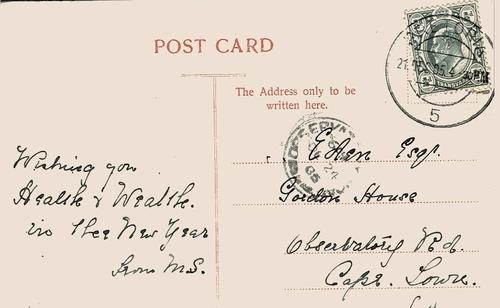 POST CARD
The Address only to be
written here.
5
Wishing you
Health & Wealth.
in the New Year
from M.S.
Esqr.
Gordon House
Observatory Rd.
Cape Town.